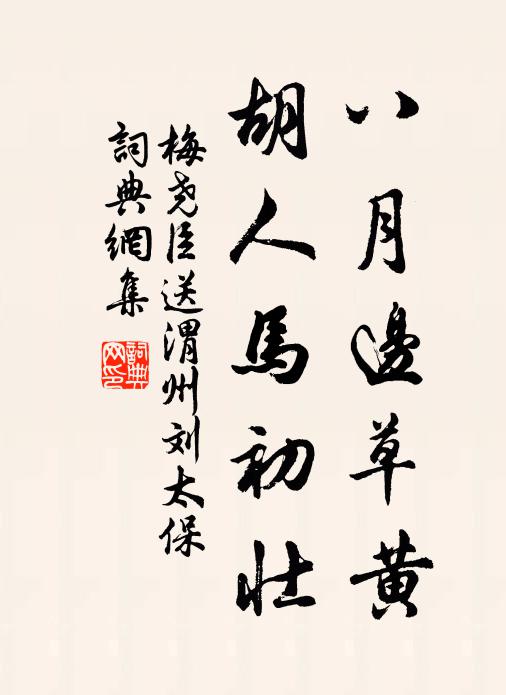 八月邊草黄
胡人馬初壮
梅尧臣送渭州刘太保
詞典網集
詞典
网印